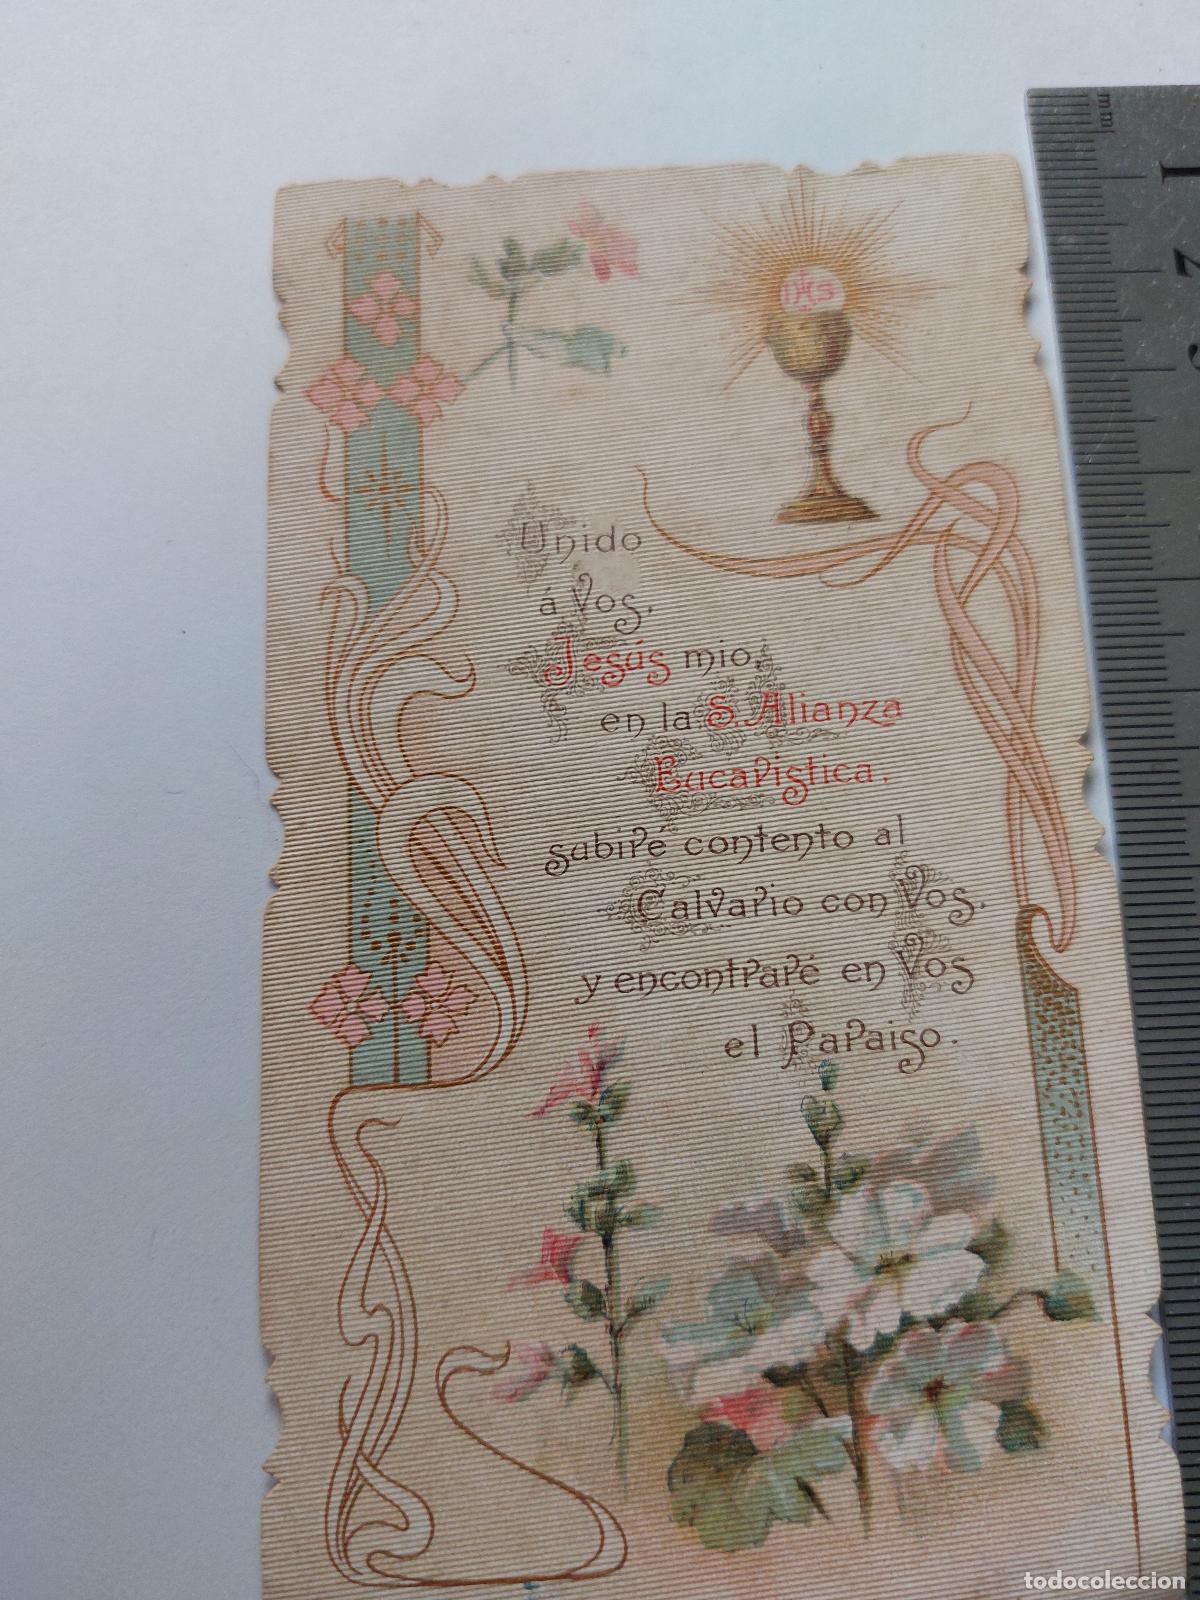 mm
1
2
3
IHS
Unido
á Vos,
Jesús mio,
en la S. Alianza
Eucaristica,
subiré contento al
Calvario con Vos,
y encontraré en Vos
el Paraiso.
todocoleccion